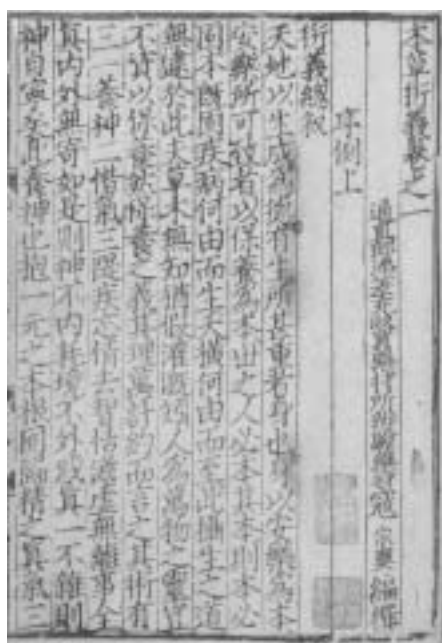 本草衍義卷之一
通直郎添差充收買藥材所辨驗藥材寇 宗奭 編撰
序例上
衍義總敘
天地以生成為德有生所甚重者身也身以安樂為本
安樂所可致者以保養為本世之人必本其本則本必
固本既固疾病何由而生夭橫何由而至此攝生之道
無逮於此夫草木無知猶假灌溉矧人為萬物之靈豈
不資以保養然保養之義其理萬計約而言之其術有
三一養神二惜氣三隄疾忘情去智恬憺虛無離事全
真內外無寄如是則神不內耗境不外惑真一不雜則
神自寧矣此養神也抱一元之本根固歸精之真氣三